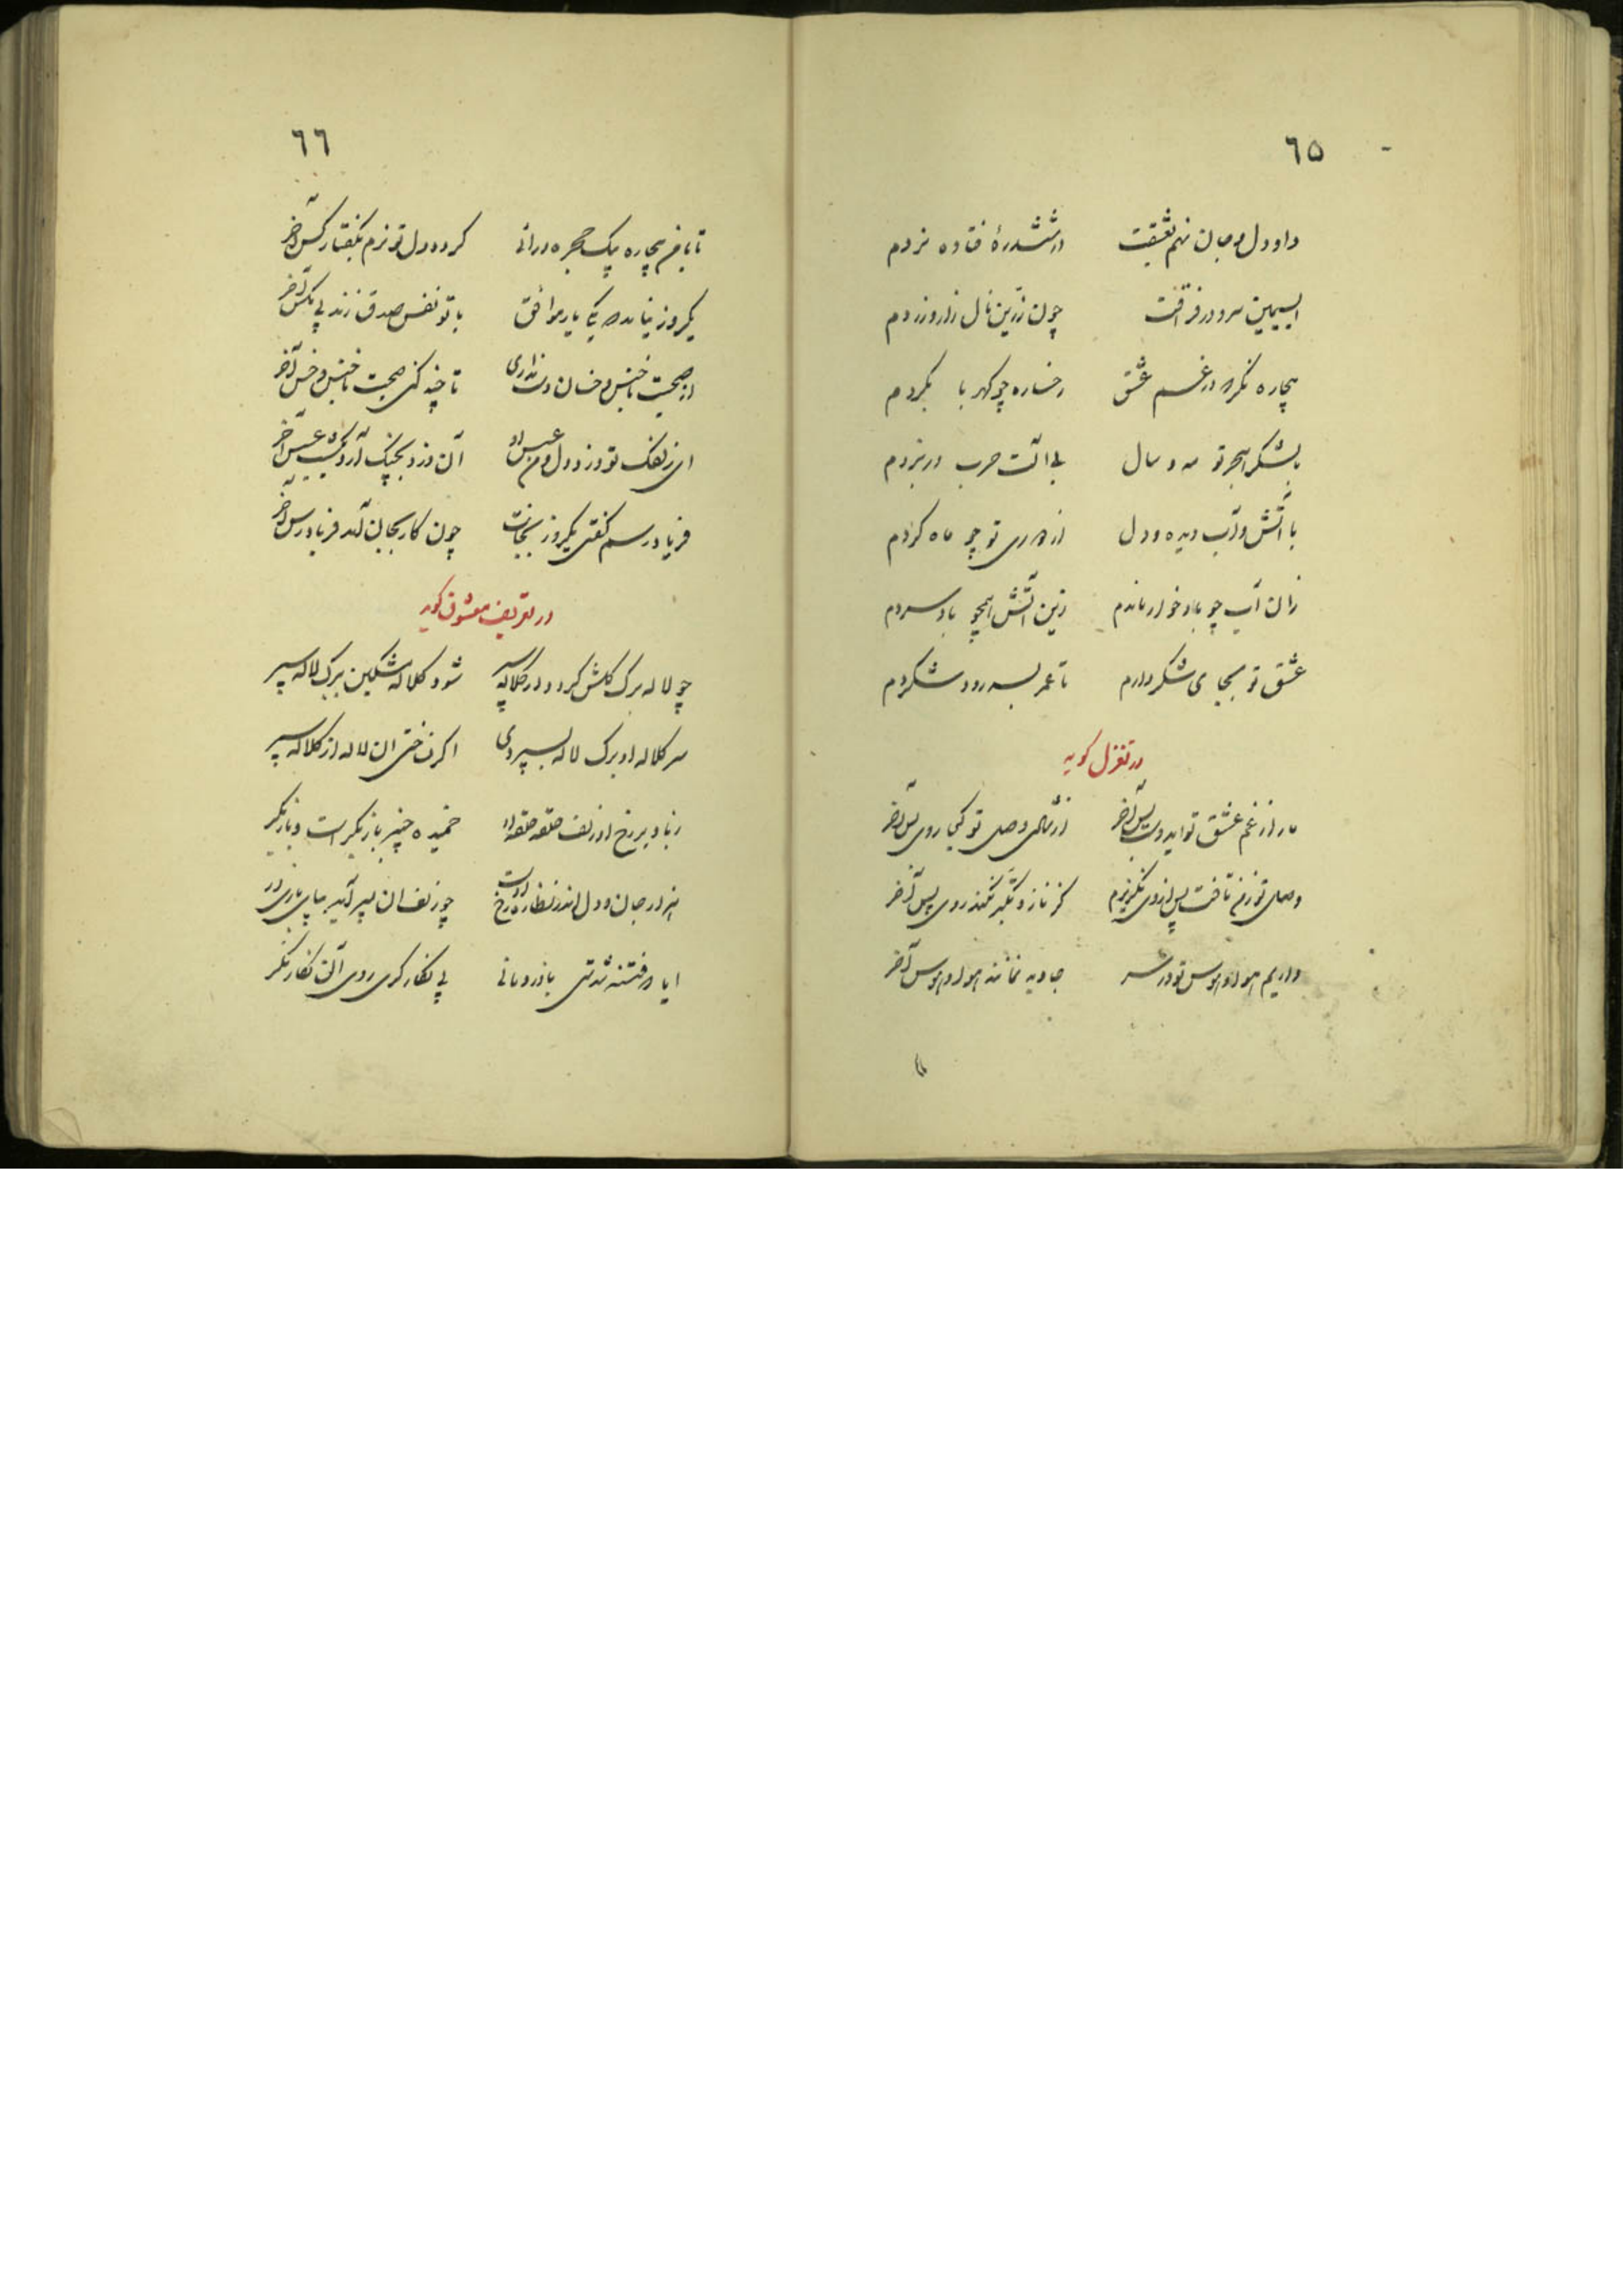 ٦٥
داو دل و جان نهم بعشقت در ششدرهٔ فتاده نردم
ای سیمین سرو در فراقت چون زرین نال زار و زردم
بیچاره نگر که در غم عشق رخساره چو کهربا بکردم
با لشکر هجر تو مه و سال بی آلت حرب در نبردم
با آتش و آب دیده و دل از مهر روی تو چو ماه کردم
زان آب چو باد خوار ماندم زین آتش همچو باد سردم
عشق تو بجای شکر دارم تا عمر بسر رود شکردم
در تغزل گوید
ما را ز غم عشق تو ای دوست بس آخر از مالش وصل تو کی روی بس آخر
وصل تو ز من تافت پس از وی نگریزم کز ناز و تکبر نکند روی پس آخر
داریم هوا و هوس تو در سر جاوید نماند هوا و هوس آخر
٦٦
تا با من بیچاره بیک حجره درآئی کرده دل تو نرم بگفتار کس آخر
یکروز نیامد که یکی یار موافق با تو نفس صدق زند بی مکس آخر
از صحبت ناجنس و خسان دست نداری تا چند کنی صحبت ناجنس و خس آخر
ای زلفک تو دزد دل و من عسس او آن دزد بچنگ آرد یکشب عسس آخر
فریاد رسم گفتی یکروز بجانت چون کار بجان آمد فریاد رس آخر
در تعریف معشوق گوید
چو لاله برگ گلش کرد در کلاله سپر شود کلاله مشکین ببرگ لاله سپر
سر کلاله او برگ لاله بسپردی اگر نساختی آن لاله از کلاله سپر
ز باد بر رخ او زلف حلقه حلقه او خمیده چنبر بازیگر است و بازیگر
هزار جان و دل اندر نظاره رخ اوست چو زلف آن پسر آید بپای بازی در
ایا که فتنه شدستی باذر و مانی پی نگارگری روی آن نگار نگر